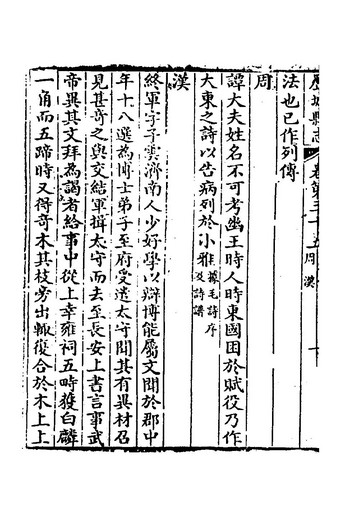 歷城縣志 卷第三十五 周 漢 一
法也已作列傳
周
譚大夫姓名不可考幽王時人時東國困於賦役乃作
大東之詩以告病列於小雅據毛詩序及詩譜
漢
終軍字子雲濟南人少好學以辯博能屬文聞於郡中
年十八選為博士弟子至府受遣太守聞其有異材召
見甚奇之與交結軍揖太守而去至長安上書言事武
帝異其文拜為謁者給事中從上幸雍祠五畤獲白麟
一角而五蹄時又得奇木其枝旁出輒復合於木上上